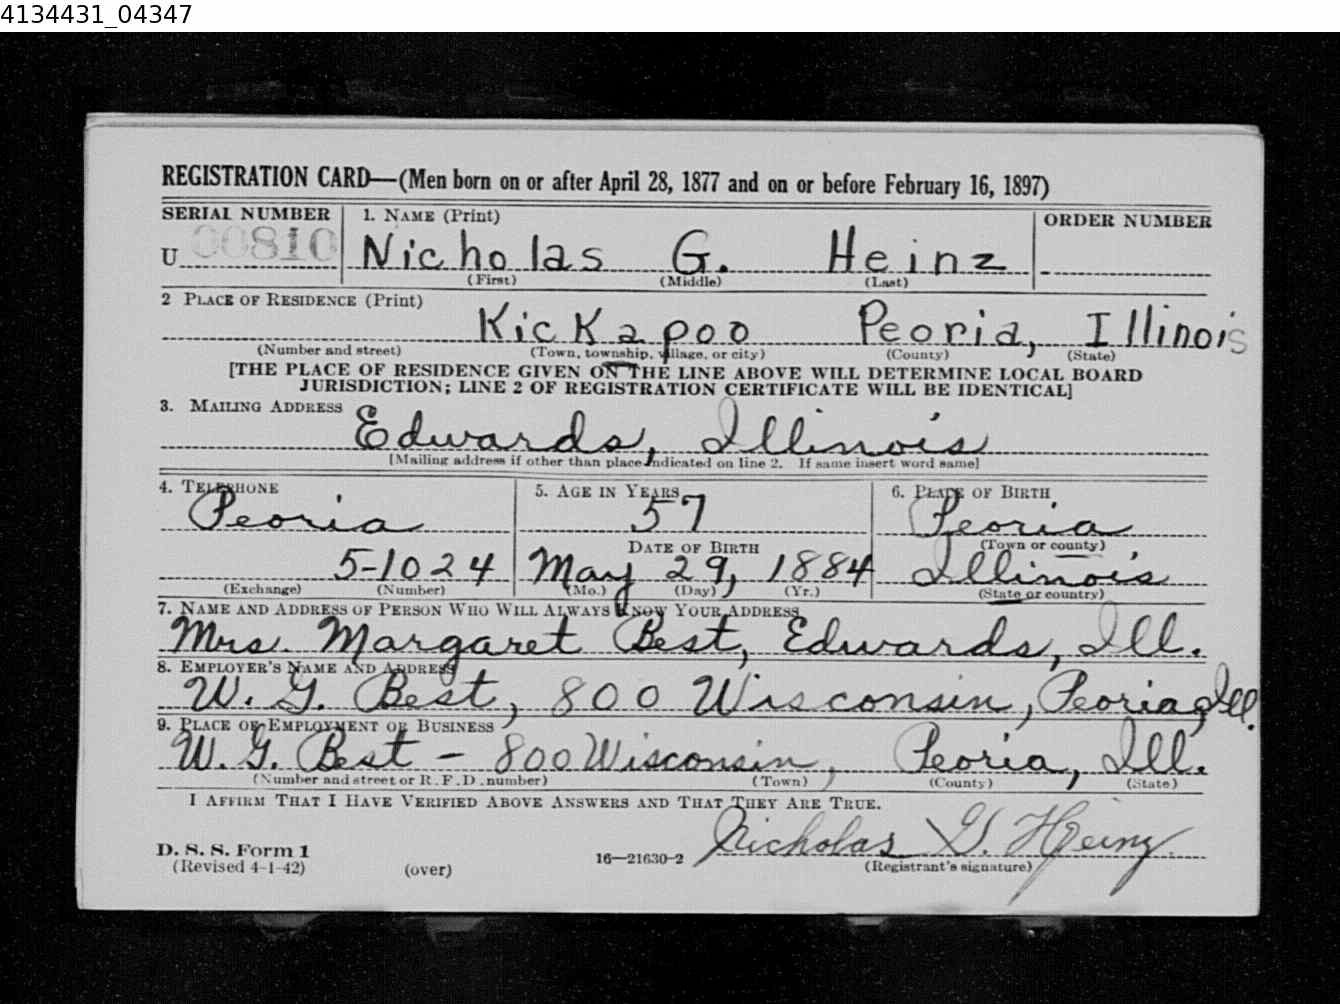 4134431_04347
REGISTRATION CARD—(Men born on or after April 28, 1877 and on or before February 16, 1897)
SERIAL NUMBER
1. NAME (Print)
ORDER NUMBER
U 00810
Nicholas G. Heinz
(First) (Middle) (Last)
2 PLACE OF RESIDENCE (Print)
Kickapoo Peoria, Illinois
(Number and street) (Town, township, village, or city) (County) (State)
[THE PLACE OF RESIDENCE GIVEN ON THE LINE ABOVE WILL DETERMINE LOCAL BOARD
JURISDICTION; LINE 2 OF REGISTRATION CERTIFICATE WILL BE IDENTICAL]
3. MAILING ADDRESS
Edwards, Illinois
[Mailing address if other than place indicated on line 2. If same insert word same]
4. TELEPHONE
Peoria
5-1024
(Exchange) (Number)
5. AGE IN YEARS
57
DATE OF BIRTH
May 29, 1884
(Mo.) (Day) (Yr.)
6. PLACE OF BIRTH
Peoria
(Town or county)
Illinois
(State or country)
7. NAME AND ADDRESS OF PERSON WHO WILL ALWAYS KNOW YOUR ADDRESS
Mrs. Margaret Best, Edwards, Ill.
8. EMPLOYER'S NAME AND ADDRESS
W. G. Best, 800 Wisconsin, Peoria, Ill.
9. PLACE OF EMPLOYMENT OR BUSINESS
W. G. Best - 800 Wisconsin, Peoria, Ill.
(Number and street or R. F. D. number) (Town) (County) (State)
I AFFIRM THAT I HAVE VERIFIED ABOVE ANSWERS AND THAT THEY ARE TRUE.
Nicholas G. Heinz
D. S. S. Form 1
(Revised 4-1-42) (over) 16—21630-2 (Registrant's signature)